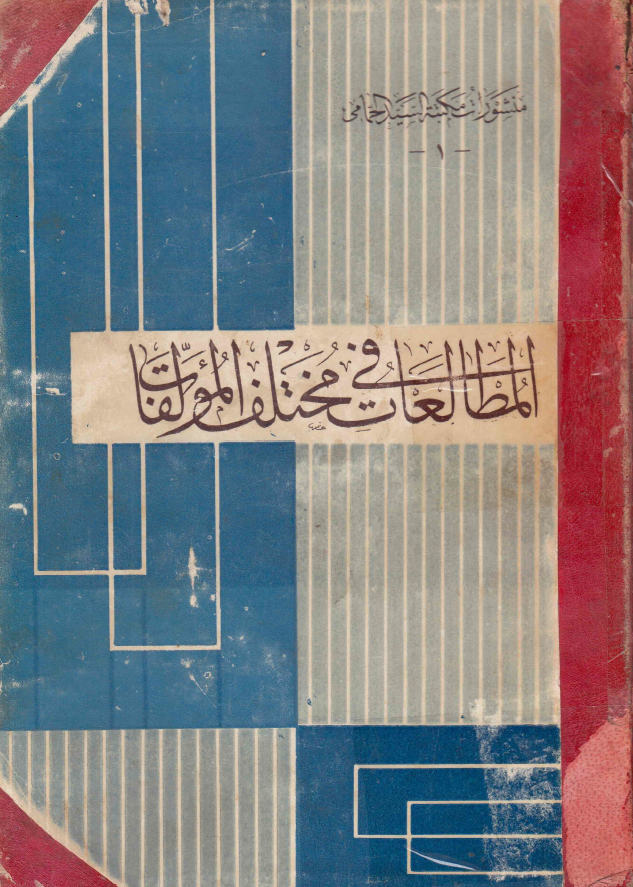 منشورات مكتبة السيد الحمامي
- ١ -
المطالعات في مختلف المؤلفات